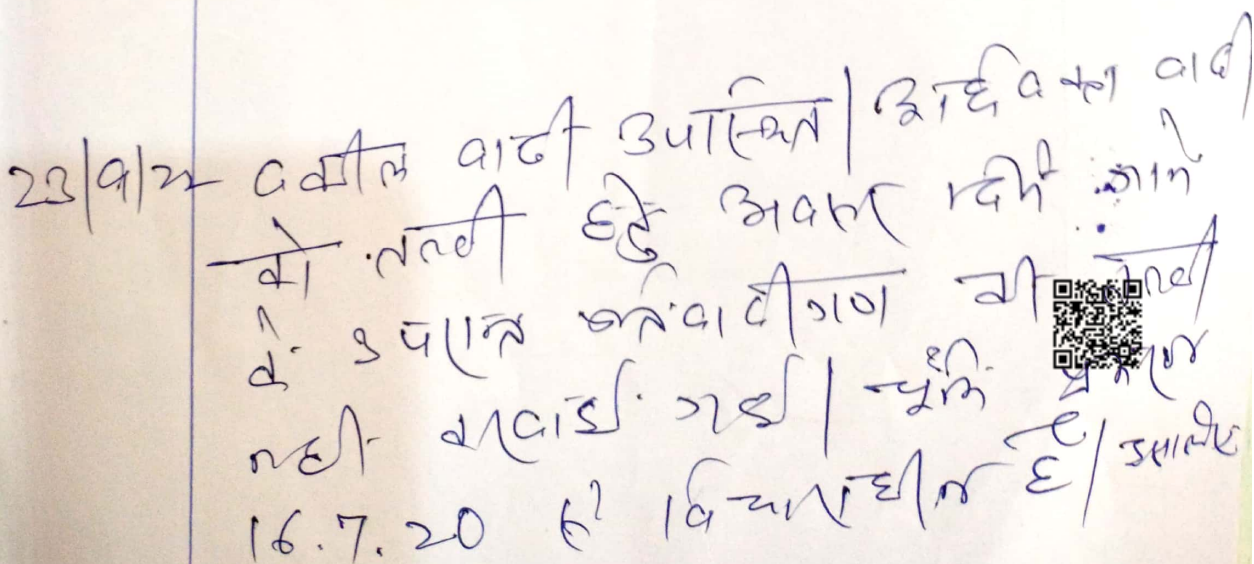 23/9/22 वकील वादी उपस्थित। अधिवक्ता वादी
को तलवी हेतु अवसर दिये जाने
के उपरान्त प्रतिवादीगण की तलवी
नही करवाई गई। चूंकि प्रकरण
16.7.20 से विचाराधीन है। इसलिए